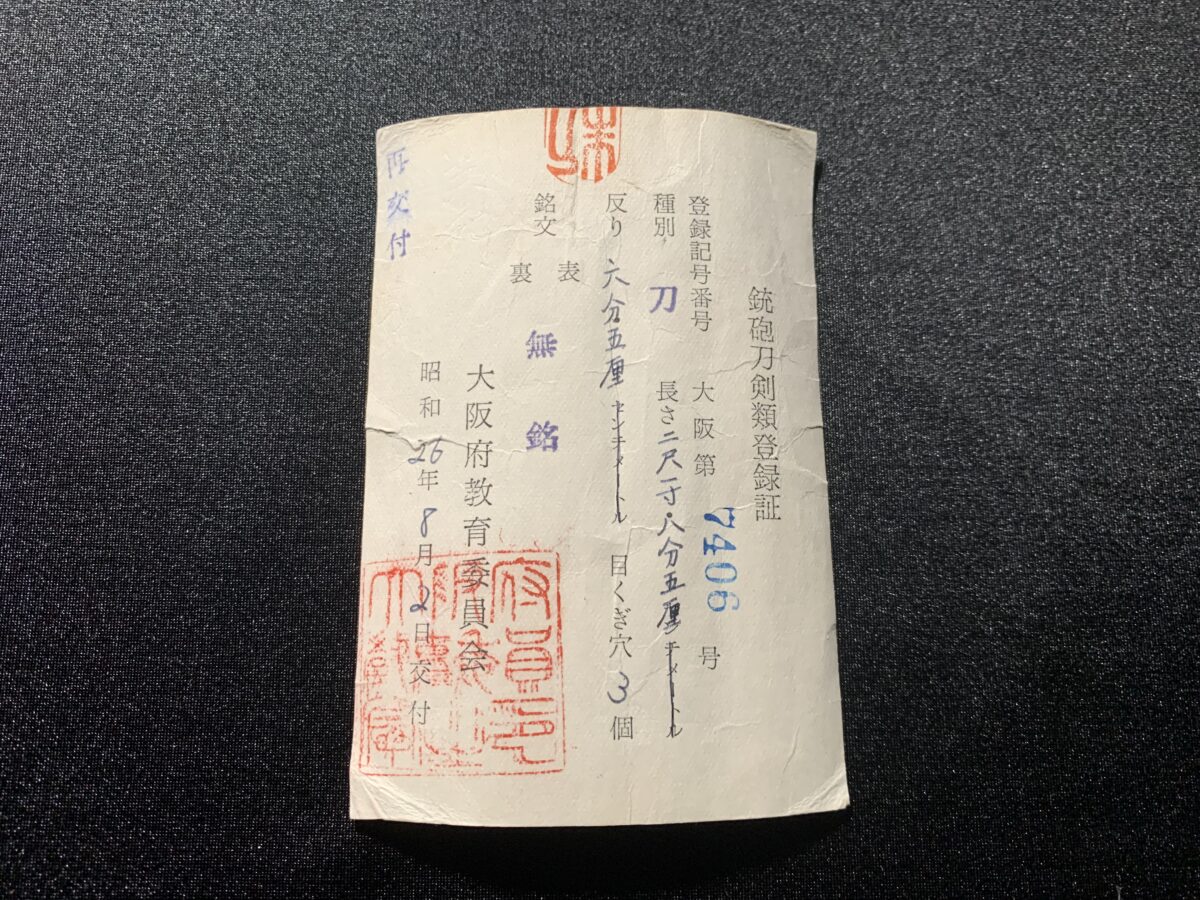 銃砲刀剣類登録証
登録記号番号 大阪第 7406 号
種別 刀 長さ 二尺一寸・八分五厘 チメートル
反り 六分五厘 センチメートル 目くぎ穴 3 個
銘文 表 無銘
裏
大阪府教育委員会
昭和 26 年 8 月 2 日交付
再交付